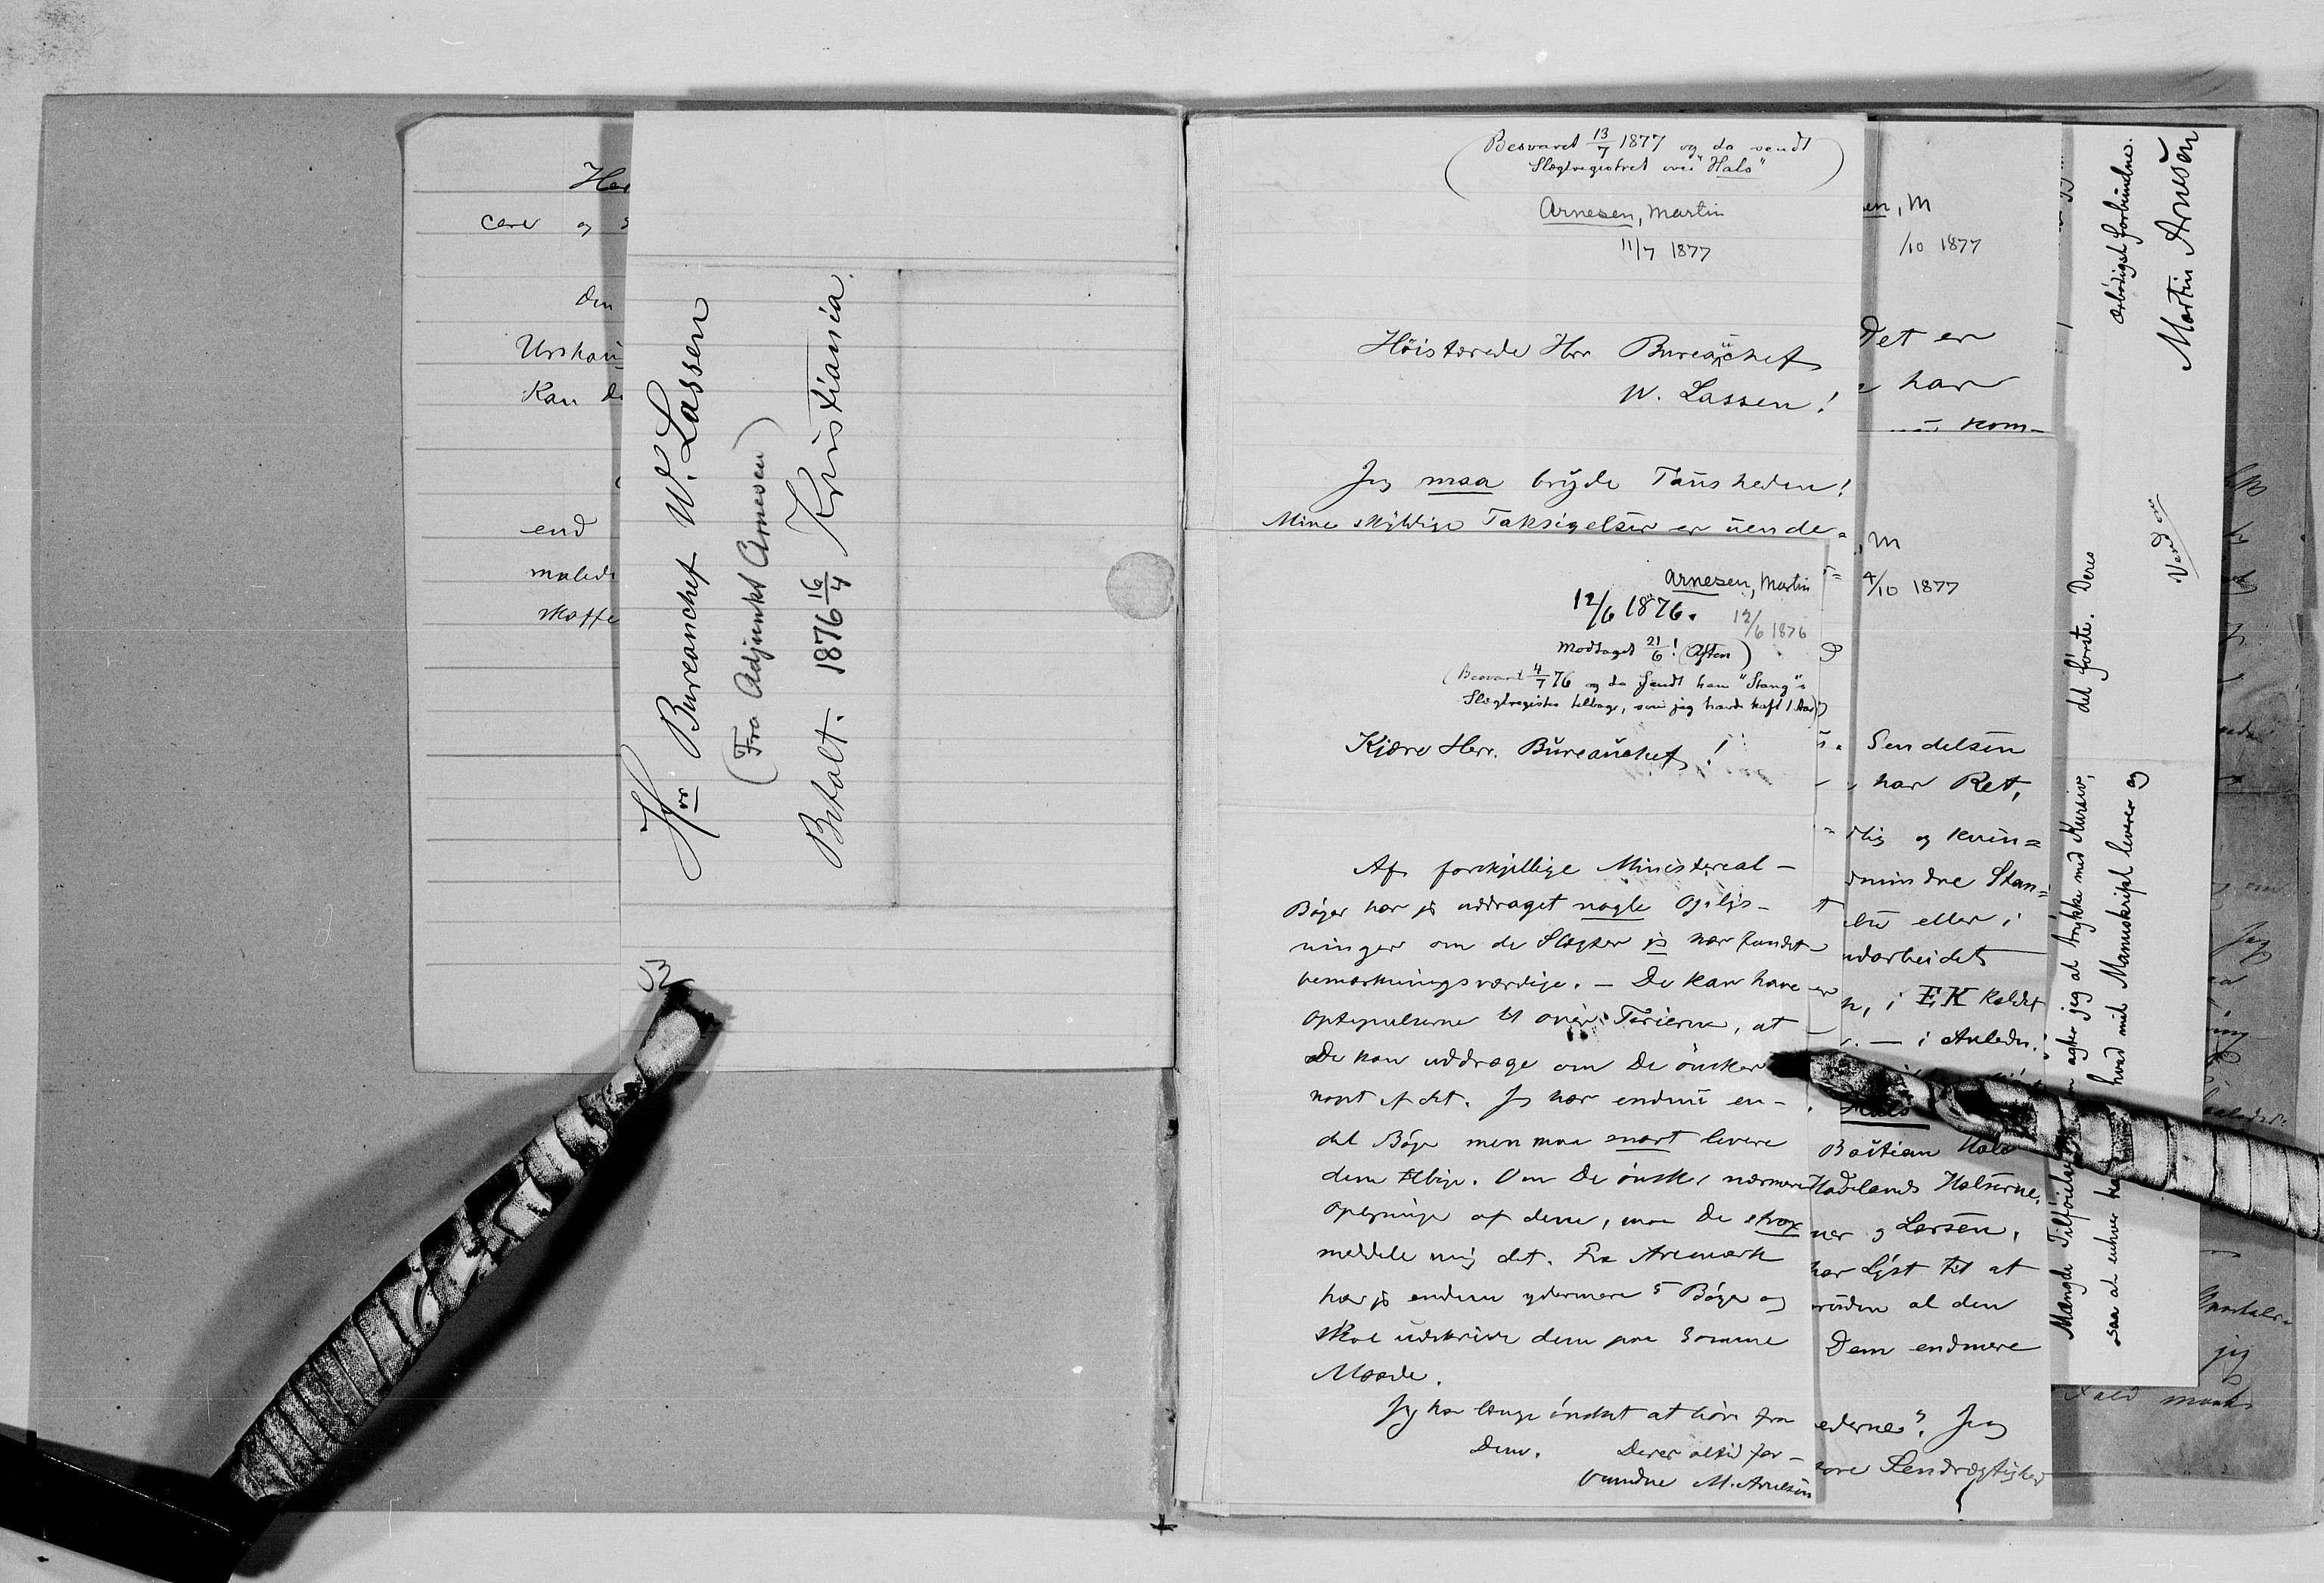 Her
care og
den
Urskou
Kan De
end
maledi
skaffe
Hrr Bureauchef W. Lassen
(Fra Adjunkt Arnesen)
Betalt. 1876 16/4 Kristiania.
53
(Besvaret 13/7 1877 og da sendt
Slægtregistret over "Hals")
Arnesen, Martin
11/7 1877
Höistærede Hrr Bureauchef
W. Lassen!
Jeg maa bryde Tausheden!
Mine skyldige Taksigelser er uende=
Arnesen, Martin
12/6 1876. 12/6 1876
Modtaget 21/6! (Aften)
(Besvaret 4/7 76 og da sendt ham "Stang"s
Slægtregister tilbage, som jeg havde havt 1 Aar)
Kjære Herr. Bureauchef!
Af forskjellige Ministereal-
Bøger har jeg uddraget nogle Oplys-
ninger om de Slægter jeg har fundet
bemærkningsværdige. – De kan have
Optegnelserne til over Ferierne, at
De kan uddrage om De önsker
noget af det. Jeg har endnu en-
del Bøger men maa snart levere
dem tilbage. Om De önsker nærmere
Oplysninger af dem, maa De strax
meddele mig det. Fra Aremark
har jeg endnu ydermere 5 Bøger og
skal udskrive dem paa samme
Maade.
Jeg har længe önsket at höre fra
Dem. Deres altid for-
bundne M. Arnesen
en, M
/10 1877
Det er
har
kom-
, M
4/10 1877
Sendelsen
har Ret,
dlig og kvin=
dmindre Stan=
eller i
udarbeidet
n, i EK kaldet
– i Anledn.
Hals
Bastian Hals
Hadelands Halserne.
ner og Larsen,
har Lyst til at
al den
Dem endmere
ederne". Jeg
Sendrægtighed
Mængde Tilföielser agter jeg at trykke med Kursiv,
saa at enhver hvad mit Manuskript leverer og
det förste. Deres
ærbödigst forbundne.
Martin Arnesen
Vend om
Jeg
jeg